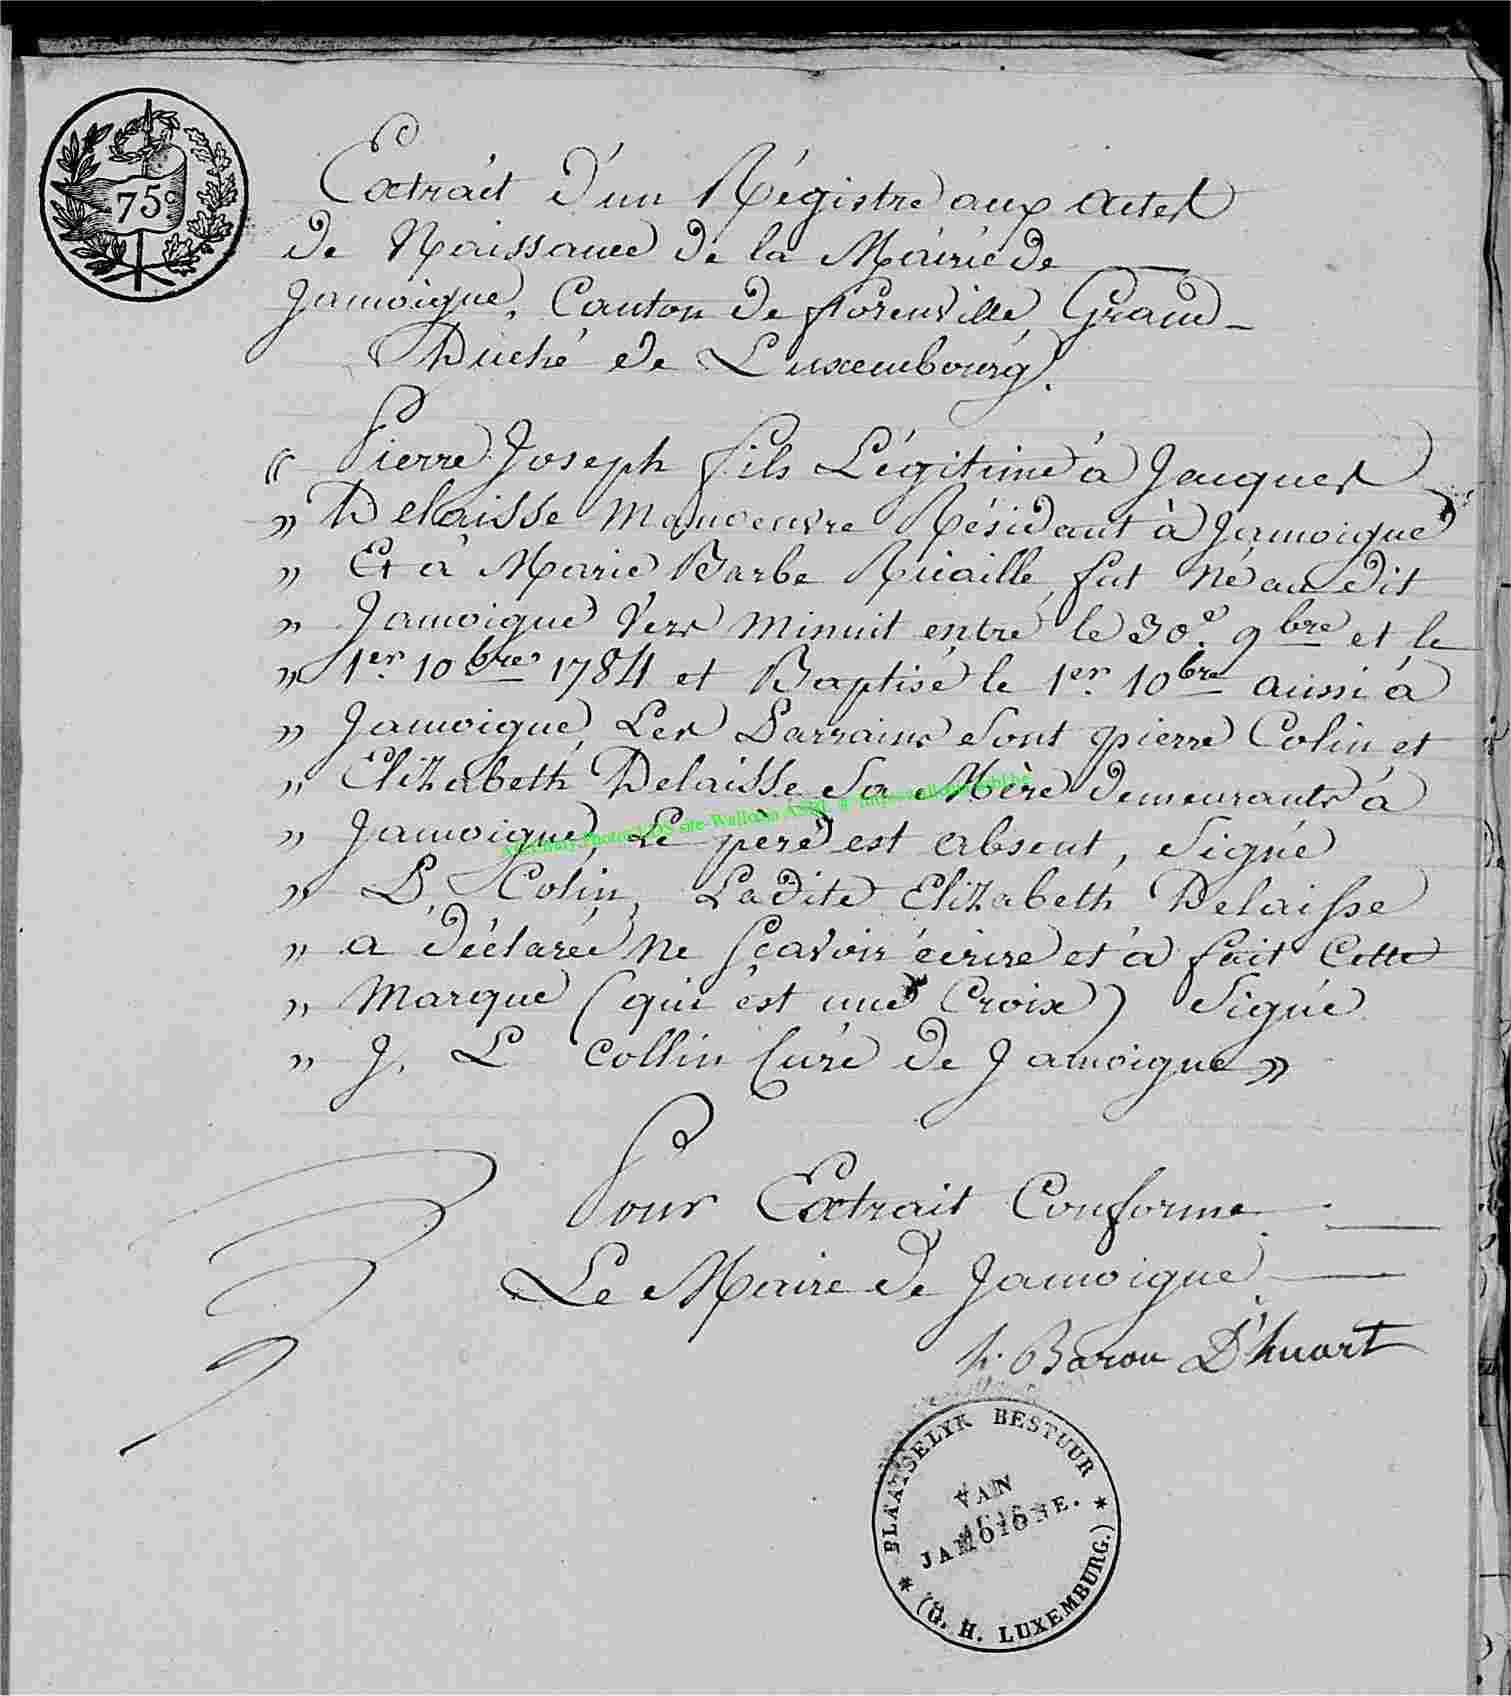 75c
Extrait d'un Régistre aux actes
de Naissance de la Mairie de
Jamoigne, Canton de florenville Grand-
Duché de Luxembourg.
« Pierre Joseph fils Légitime à Jacques
» Delaisse Manoeuvre Résidant à Jamoigne
» Et à Marie Barbe Ricaille, fut Né au dit
» Jamoigne Vers Minuit entre le 30e 9bre et le
» 1er 10bre 1784 et Baptisé le 1er 10bre aussi à
» Jamoigne, Les Parrains sont pierre Colin et
» Elizabeth Delaisse Sa Mère demeurants à
» Jamoigne, Le père est absent, Signé
» P. Colin, Ladite Elizabeth Delaisse
» a déclarée Ne sçavoir écrire et a fait Cette
» Marque (qui est une Croix) Signé
» J. L Collin Curé de Jamoigne »
Pour Extrait Conforme
Le Maire de Jamoigne
Baron D'huart
PLAATSELYK BESTUUR
VAN
JAMOIGNE.
(G. H. LUXEMBURG.)